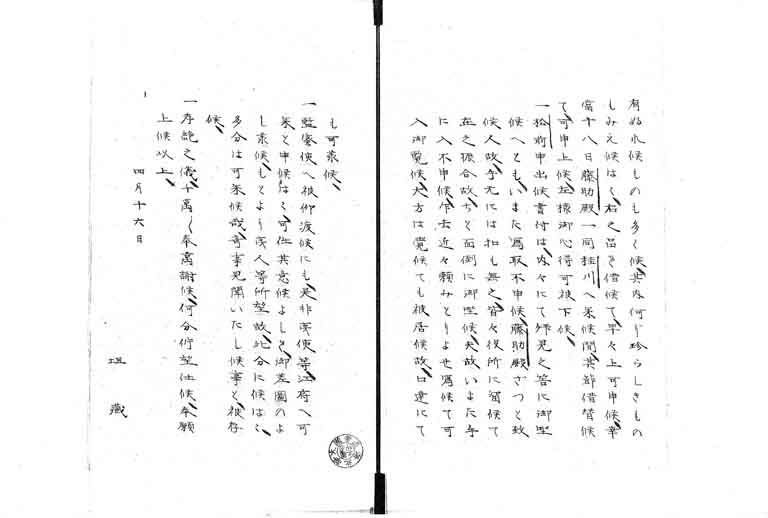 有如此候ものも多く候其内何ぞ珍らしきもの
もみえ候はゝ右之品を借候て早々上可申候幸
當十八日藤助殿一同桂川へ参候間其節借替候
て可申上候左様御心得可被下候
一松前申出候書付は内々にて拝見之答に御座
候へともいまた寫取不申候藤助殿ざつと致
候人故手元には扣も無之皆々役所に留候て
在之振合故ちと面倒に御座候夫故いまた手
に入不申候乍去近々頼みとりよせ寫候て可
入御覧候大方は覚候ても被居候故口達にて
も可承候
一監察使へ被仰渡候にも是非両使等江府へ可
参と申候はゝ可任其意候よしを御差圖のよ
し承候もとより両人等所望故此分に候はゝ
多分は可参候哉奇事見聞いたし候事と被存
候
一存絶之儀十萬〱奉萬謝候何分所望仕候奉願
上候以上
四月十六日
藏